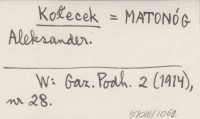 Kołecek = MATONÓG
Aleksander.
W: Gaz. Podh. 2 (1914),
nr 28.